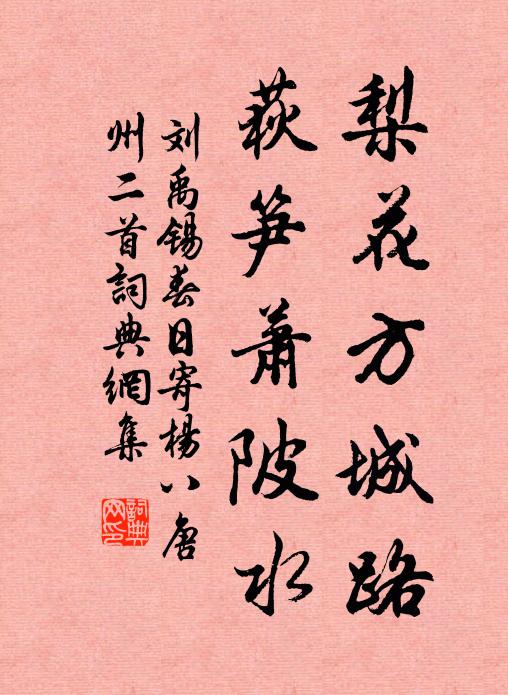 梨花方城路
荻笋萧陂水
刘禹锡春日寄楊八唐
州二首詞典網集
詞典
网印